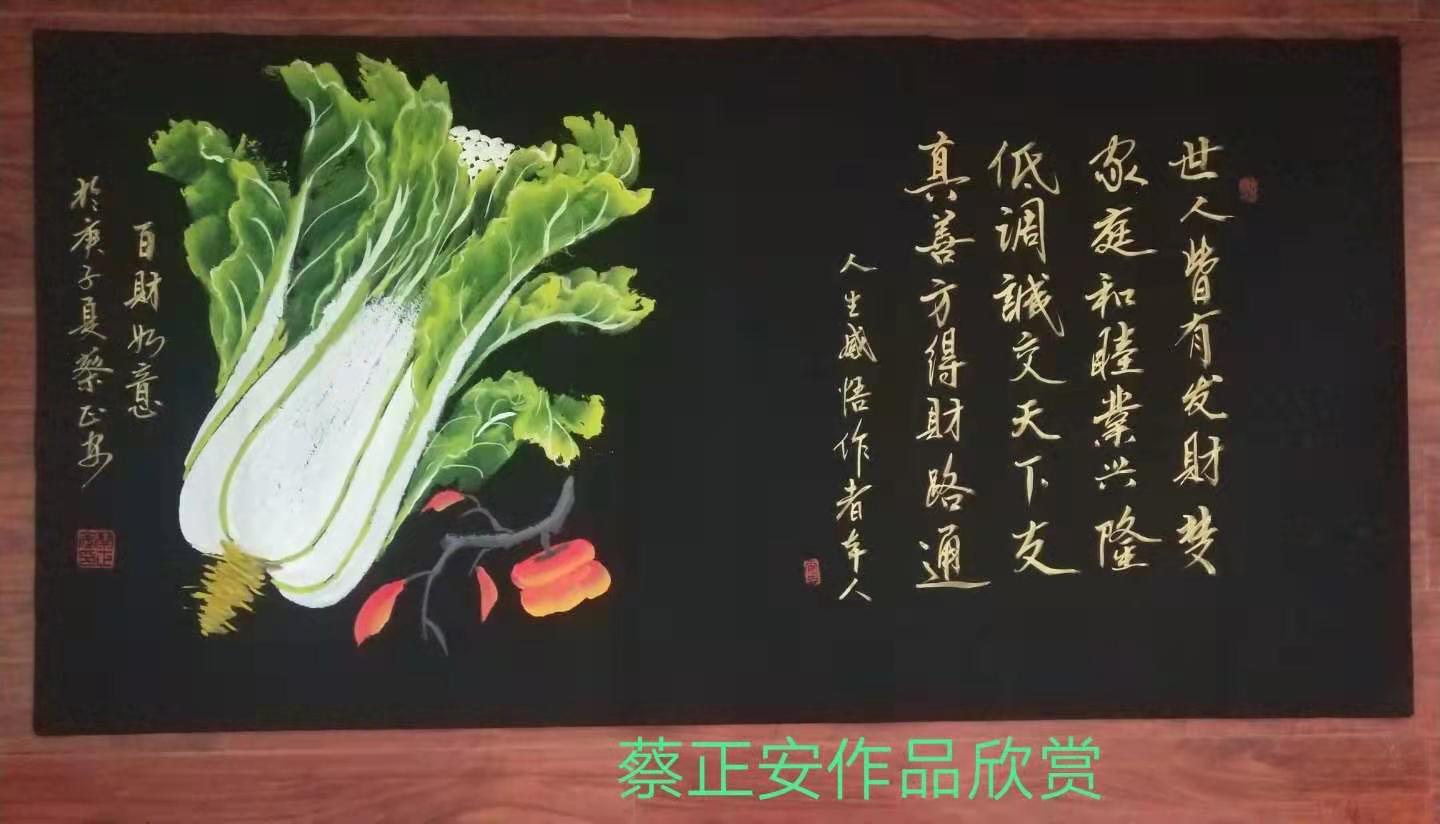 世人皆有发財梦
家庭和睦業兴隆
低调誠交天下友
真善方得財路通
人生感悟作者本人
百財如意
於庚子夏蔡正安
蔡正安作品欣赏